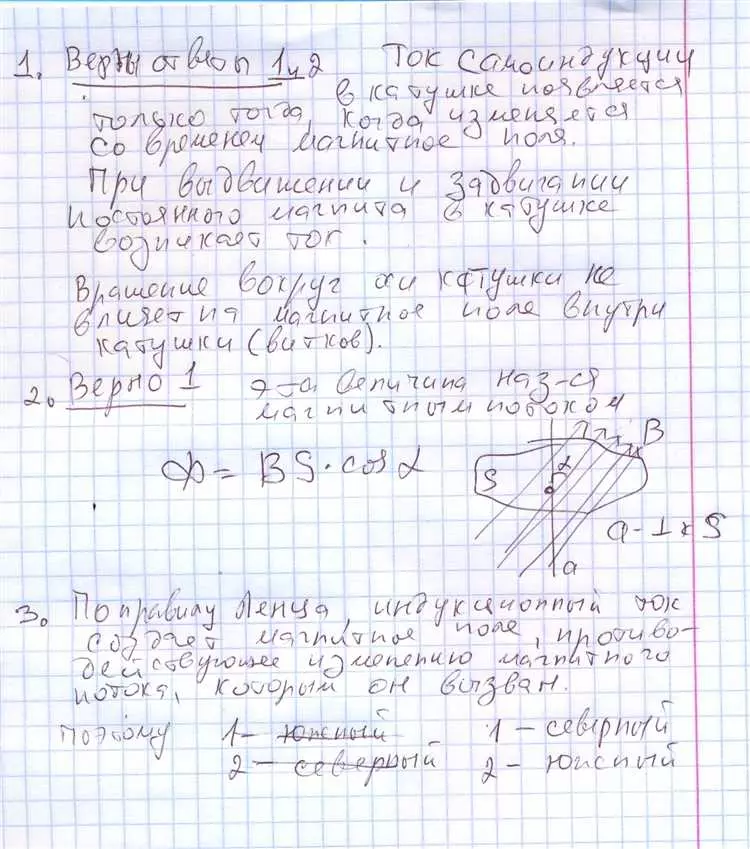 1. Верны ответы 1 и 2 Ток самоиндукции
в катушке появляется
только тогда, когда изменяется
со временем магнитное поле.
При выдвижении и задвигании
постоянного магнита в катушке
возникает ток.
Вращение вокруг оси катушки не
влияет на магнитное поле внутри
катушки (витков).
2. Верно 1 Э-а величина наз-ся
магнитным потоком
Ф = BS·cosα
B
S
α
a - ⊥ к S
a
3. По правилу Ленца, индукционный ток
создаёт магнитное поле, противо-
действующее изменению магнитного
потока, которым он вызван.
Поэтому 1 - южный 1 - северный
2 - северный 2 - южный